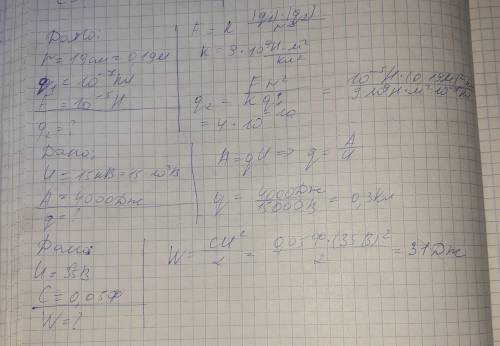 Дано:
r = 19см = 0,19м
q₁ = 10⁻⁷кл
F = 10⁻⁵Н
q₂ = ?
F = k |q₁|·|q₂| / r²
k = 9·10⁹ Н·м² / кл²
q₂ = F r² / k q₁ = 10⁻⁵Н·(0,19м)²
= 4·10⁻¹⁰
Дано:
U = 15кВ = 15·10³В
A = 4000Дж
q = ?
A = qU ⇒ q = A / U
q = 4000Дж / 15000В = 0,3Кл
Дано
U = 35В
C = 0,05Ф
W = ?
W = CU² / 2 = 0,05Ф·(35В)² / 2 = 31Дж